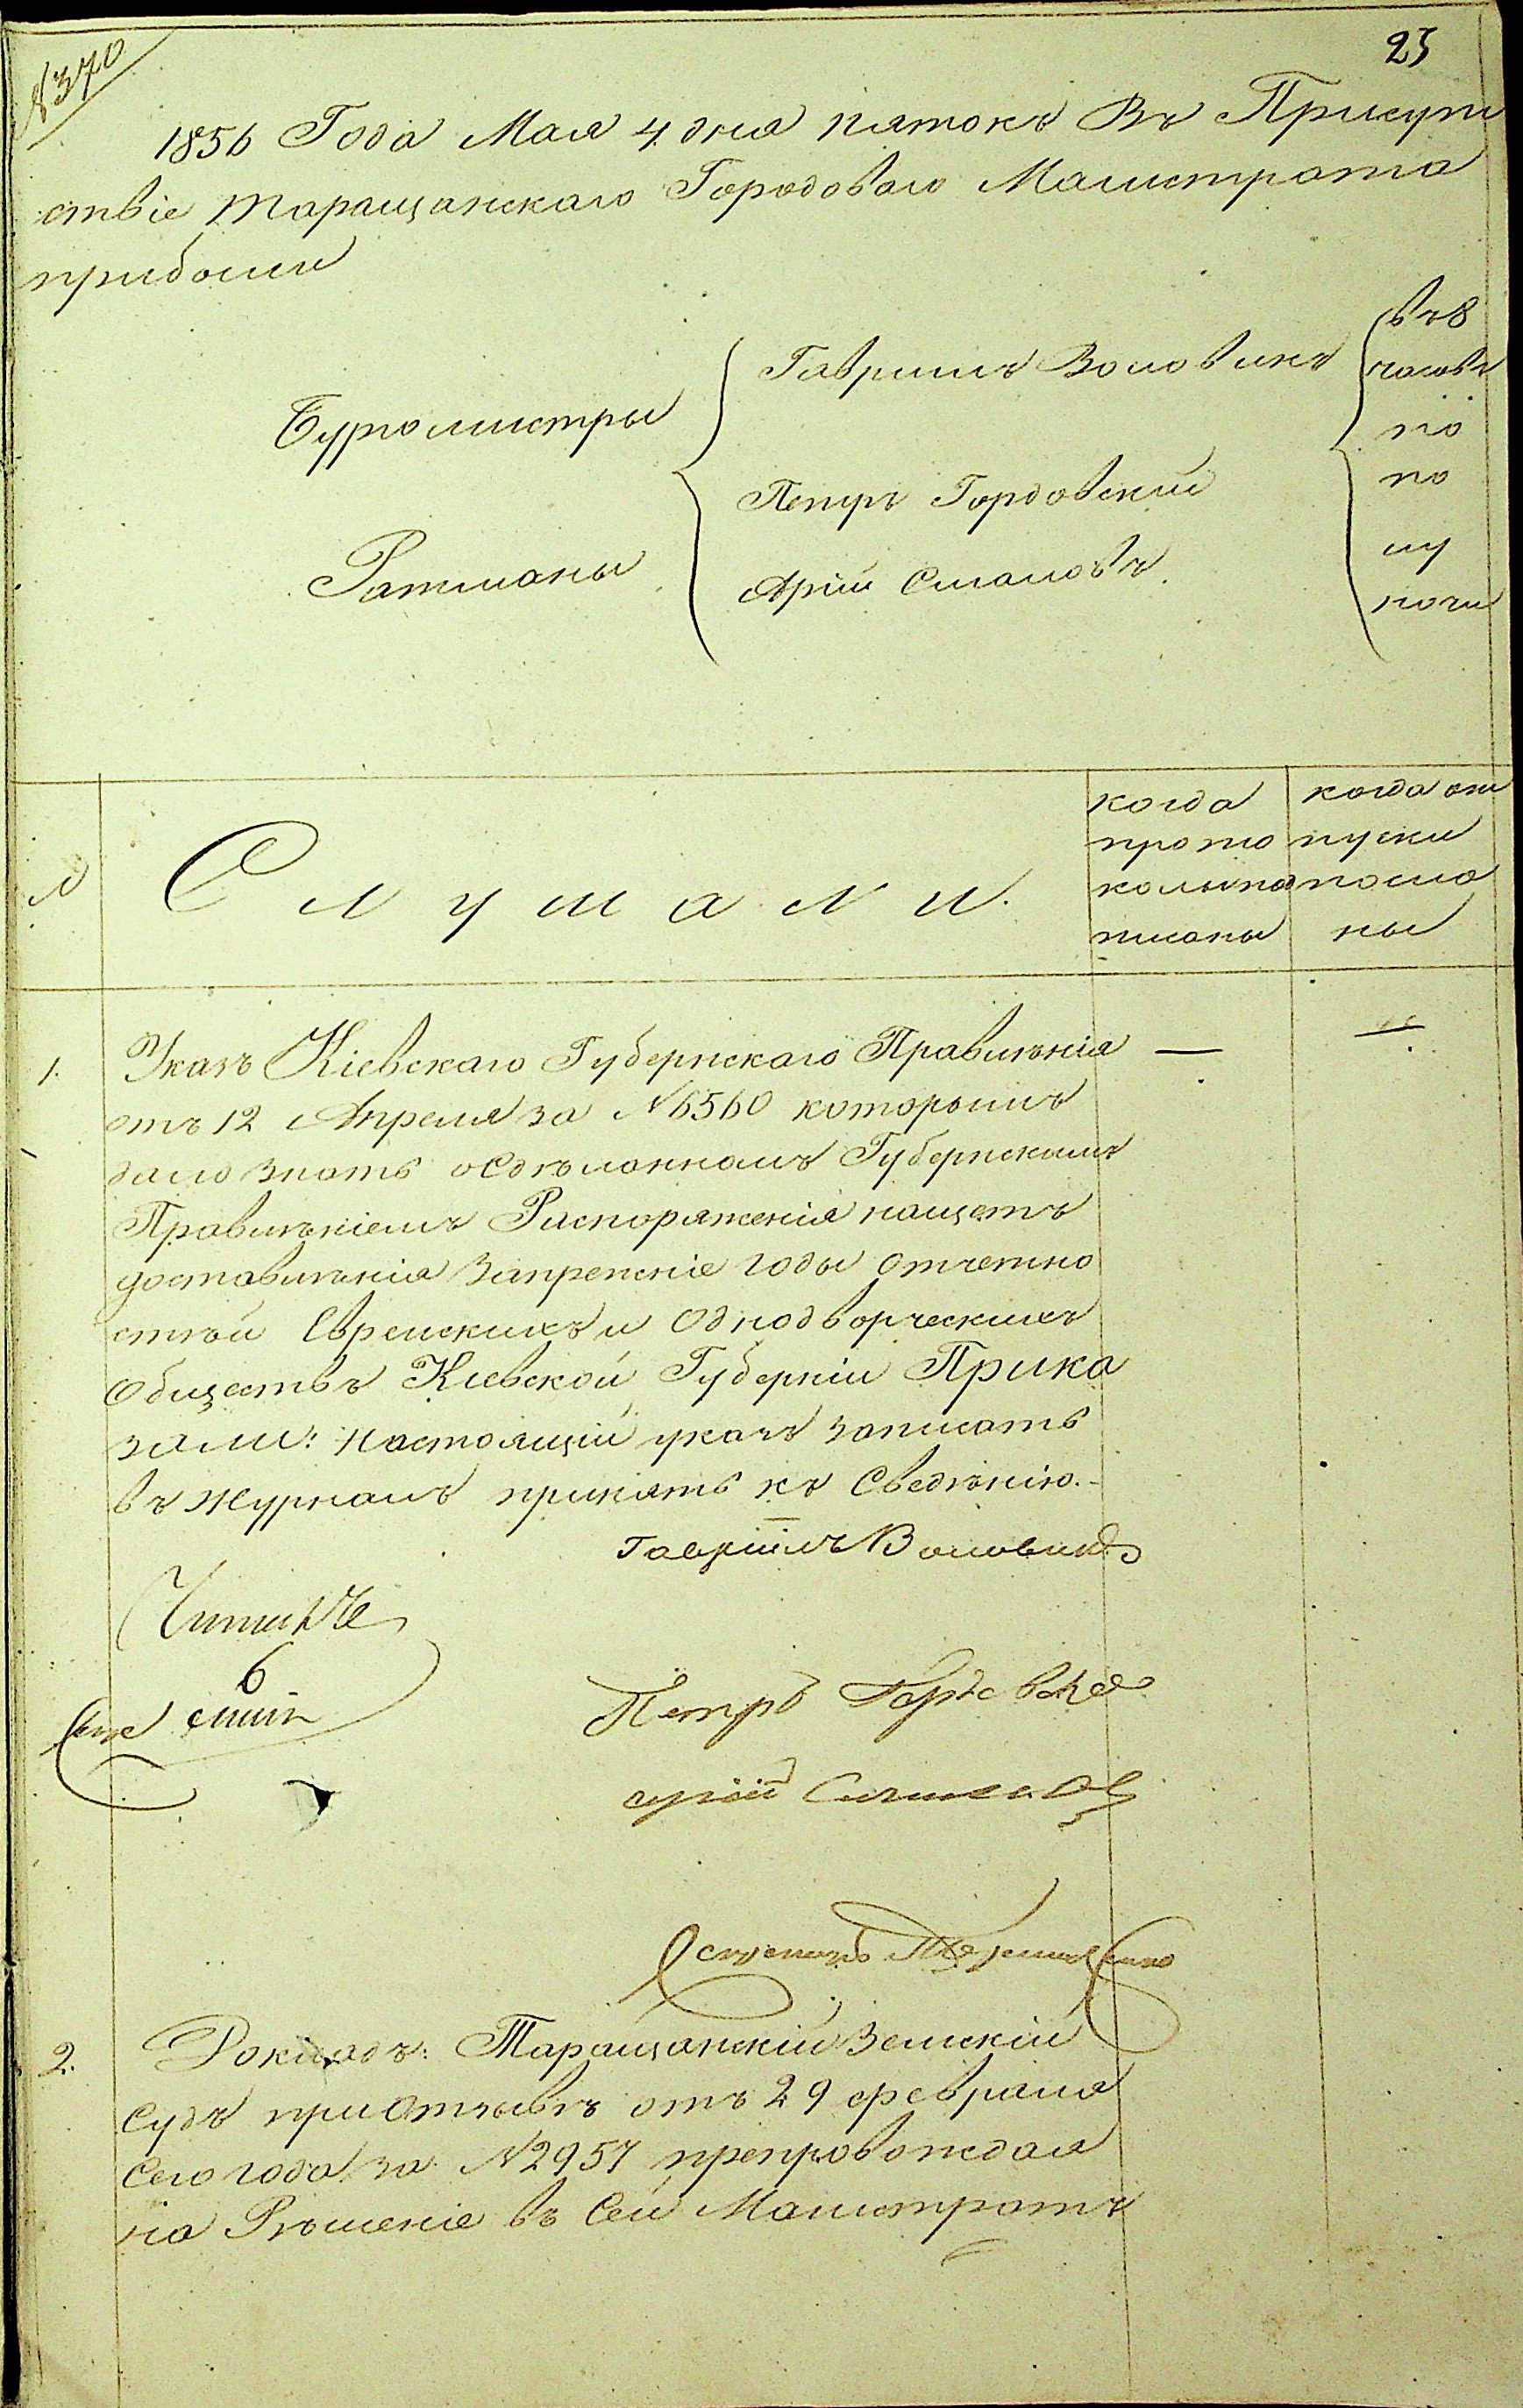 №370
25
1856 Года Мая 4 дня пятокъ Въ Присут
ствіе Таращанскаго Городоваго Магистрата
прибыли
Бургомистры
Гавриилъ Воловикъ
въ 8
часовъ
по
по
лу
ночи
Ратманы
Петръ Гордовский
Арій Смаловъ
№
Слушали.
когда
прото
колы по
писаны
когда от
пуски
посла
ны
1. Указъ Кіевскаго Губернскаго Правленія
отъ 12 Апреля за №6560 которымъ
дало знать о Сдѣланномъ Губернскимъ
Правлѣніемъ Распоряженія нащетъ
доставлѣнія Запрежніе годы отчетно
стѣй Еврейскихъ и Однодворческихъ
Обществъ Кіевской Губерніи Прика
зали: настоящій указъ записать
въ журналъ принять къ Сведѣнію.-
Гавриилъ Воловикъ
6
Петръ Гордовский
Арій
2. Докладъ: Таращанскій Земскій
Судъ при Отзывѣ отъ 29 февраля
Сего года за №2957 препровождая
на Рѣшеніе въ Сей Магистратъ